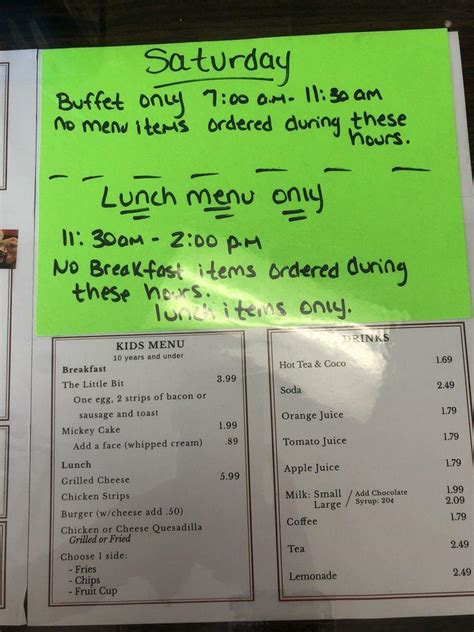 Saturday
Buffet only 7:00 a.m - 11:30 am
no menu items ordered during these
hours.
Lunch menu only
11:30am - 2:00 p.m
No Breakfast items ordered during
these hours.
lunch items only.
KIDS MENU
10 years and under
Breakfast
The Little Bit 3.99
One egg, 2 strips of bacon or
sausage and toast
Mickey Cake 1.99
Add a face (whipped cream) .89
Lunch
Grilled Cheese 5.99
Chicken Strips
Burger (w/cheese add .50)
Chicken or Cheese Quesadilla
Grilled or Fried
Choose 1 side:
- Fries
- Chips
- Fruit Cup
DRINKS
Hot Tea & Coco 1.69
Soda 2.49
Orange Juice 1.79
Tomato Juice 1.79
Apple Juice 1.79
Milk: Small / Add Chocolate 1.99
Large / Syrup: 20¢ 2.09
Coffee 1.79
Tea 2.49
Lemonade 2.49